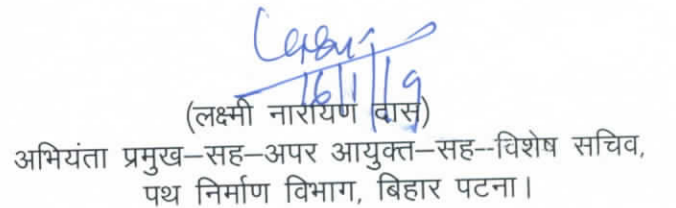 16/1/19
(लक्ष्मी नारायण दास)
अभियंता प्रमुख–सह–अपर आयुक्त–सह--विशेष सचिव,
पथ निर्माण विभाग, बिहार पटना।